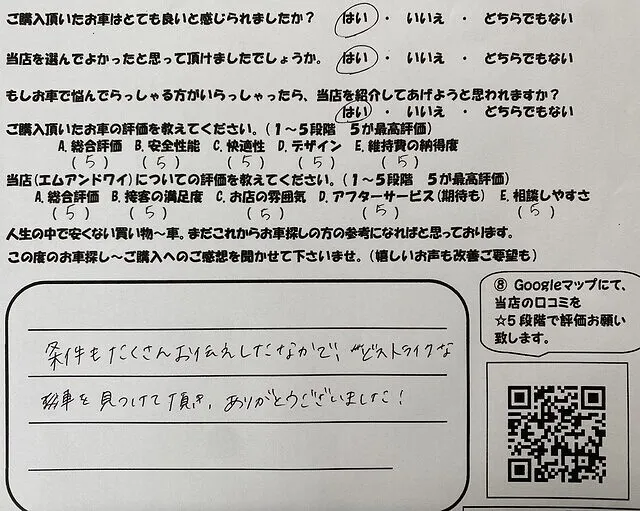 ご購入頂いたお車はとても良いと感じられましたか？ はい ・ いいえ ・ どちらでもない
当店を選んでよかったと思って頂けましたでしょうか。 はい ・ いいえ ・ どちらでもない
もしお車で悩んでらっしゃる方がいらっしゃったら、当店を紹介してあげようと思われますか？
はい ・ いいえ ・ どちらでもない
ご購入頂いたお車の評価を教えてください。(1～5段階 5が最高評価)
A. 総合評価 B. 安全性能 C. 快適性 D. デザイン E. 維持費の納得度
(5) (5) (5) (5) (5)
当店(エムアンドワイ)についての評価を教えてください。(1～5段階 5が最高評価)
A. 総合評価 B. 接客の満足度 C. お店の雰囲気 D. アフターサービス(期待も) E. 相談しやすさ
(5) (5) (5) (5) (5)
人生の中で安くない買い物～車。まだこれからお車探しの方の参考になればと思っております。
この度のお車探し～ご購入へのご感想を聞かせて下さいませ。(嬉しいお声も改善ご要望も)
条件もたくさんお伝えしたなかで、どストライクな
車を見つけて頂き、ありがとうございました！
⑧ Googleマップにて、
当店の口コミを
☆5段階で評価お願い
致します。